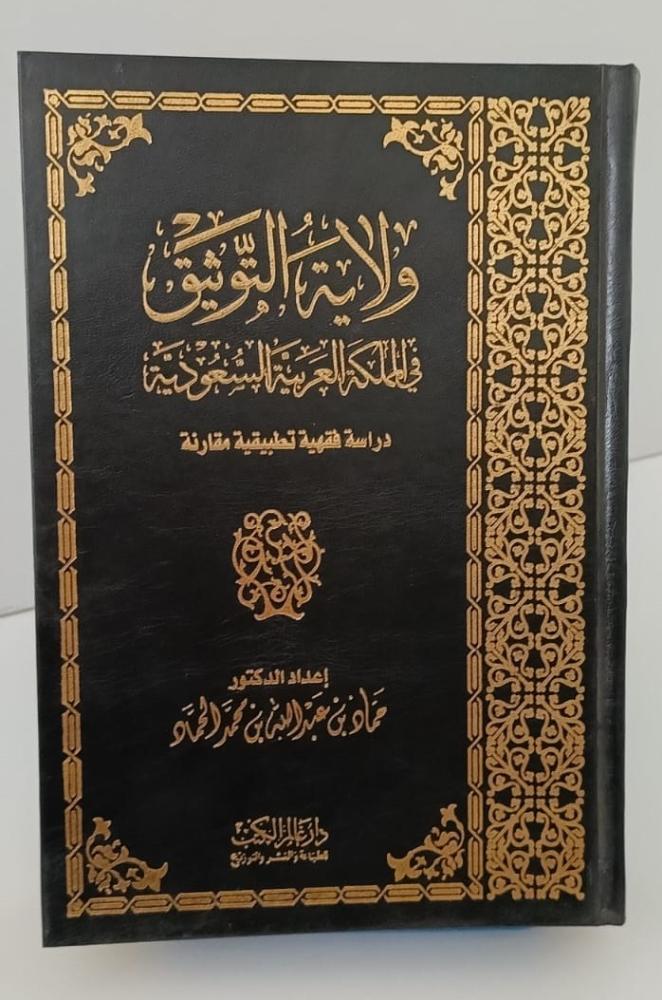 ولاية التوثيق
في المملكة العربية السعودية
دراسة فقهية تطبيقية مقارنة
إعداد الدكتور
حماد بن عبدالله بن محمد الحماد
دار عالم الكتب
للطباعة والنشر والتوزيع